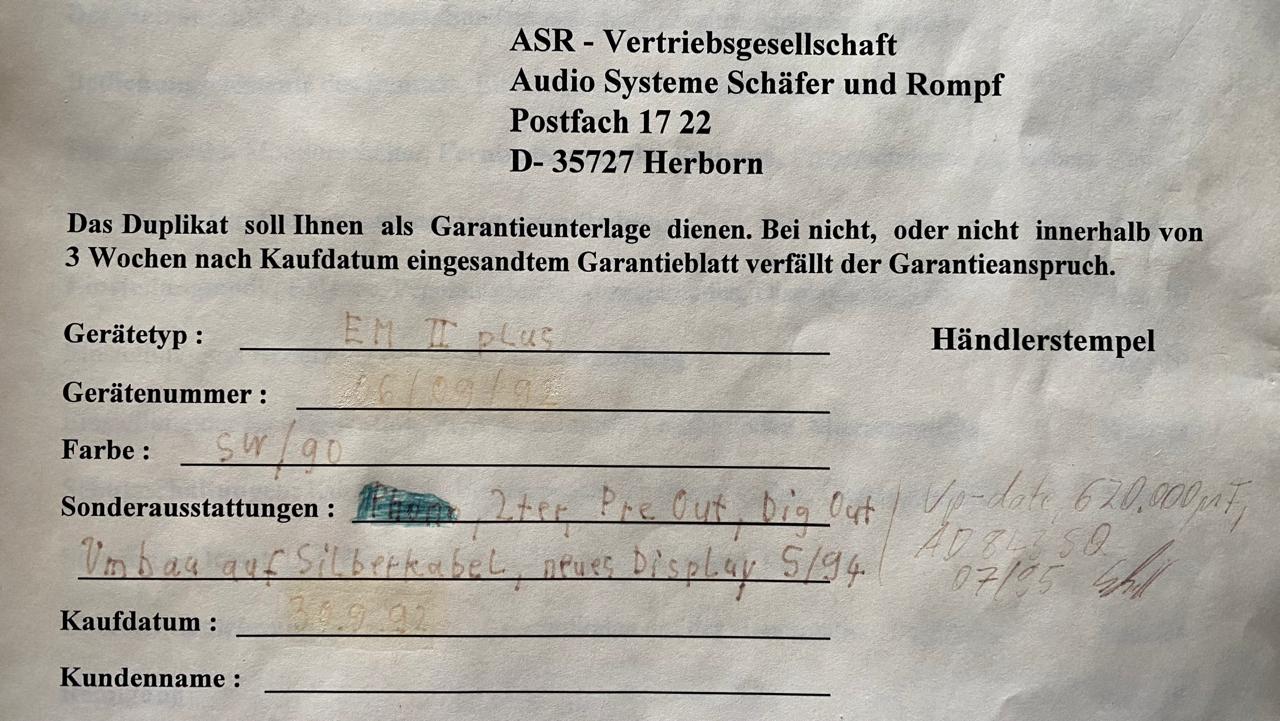 ASR - Vertriebsgesellschaft
Audio Systeme Schäfer und Rompf
Postfach 17 22
D- 35727 Herborn
Das Duplikat soll Ihnen als Garantieunterlage dienen. Bei nicht, oder nicht innerhalb von
3 Wochen nach Kaufdatum eingesandtem Garantieblatt verfällt der Garantieanspruch.
Gerätetyp : EM II plus
Händlerstempel
Gerätenummer : 06/09/92
Farbe : SW/90
Sonderausstattungen : , 2ter, Pre Out, Dig Out
Umbau auf Silberkabel, neues Display 5/94
Up-date, 620.000µF,
07/95
Kaufdatum : 30.9.92
Kundenname :